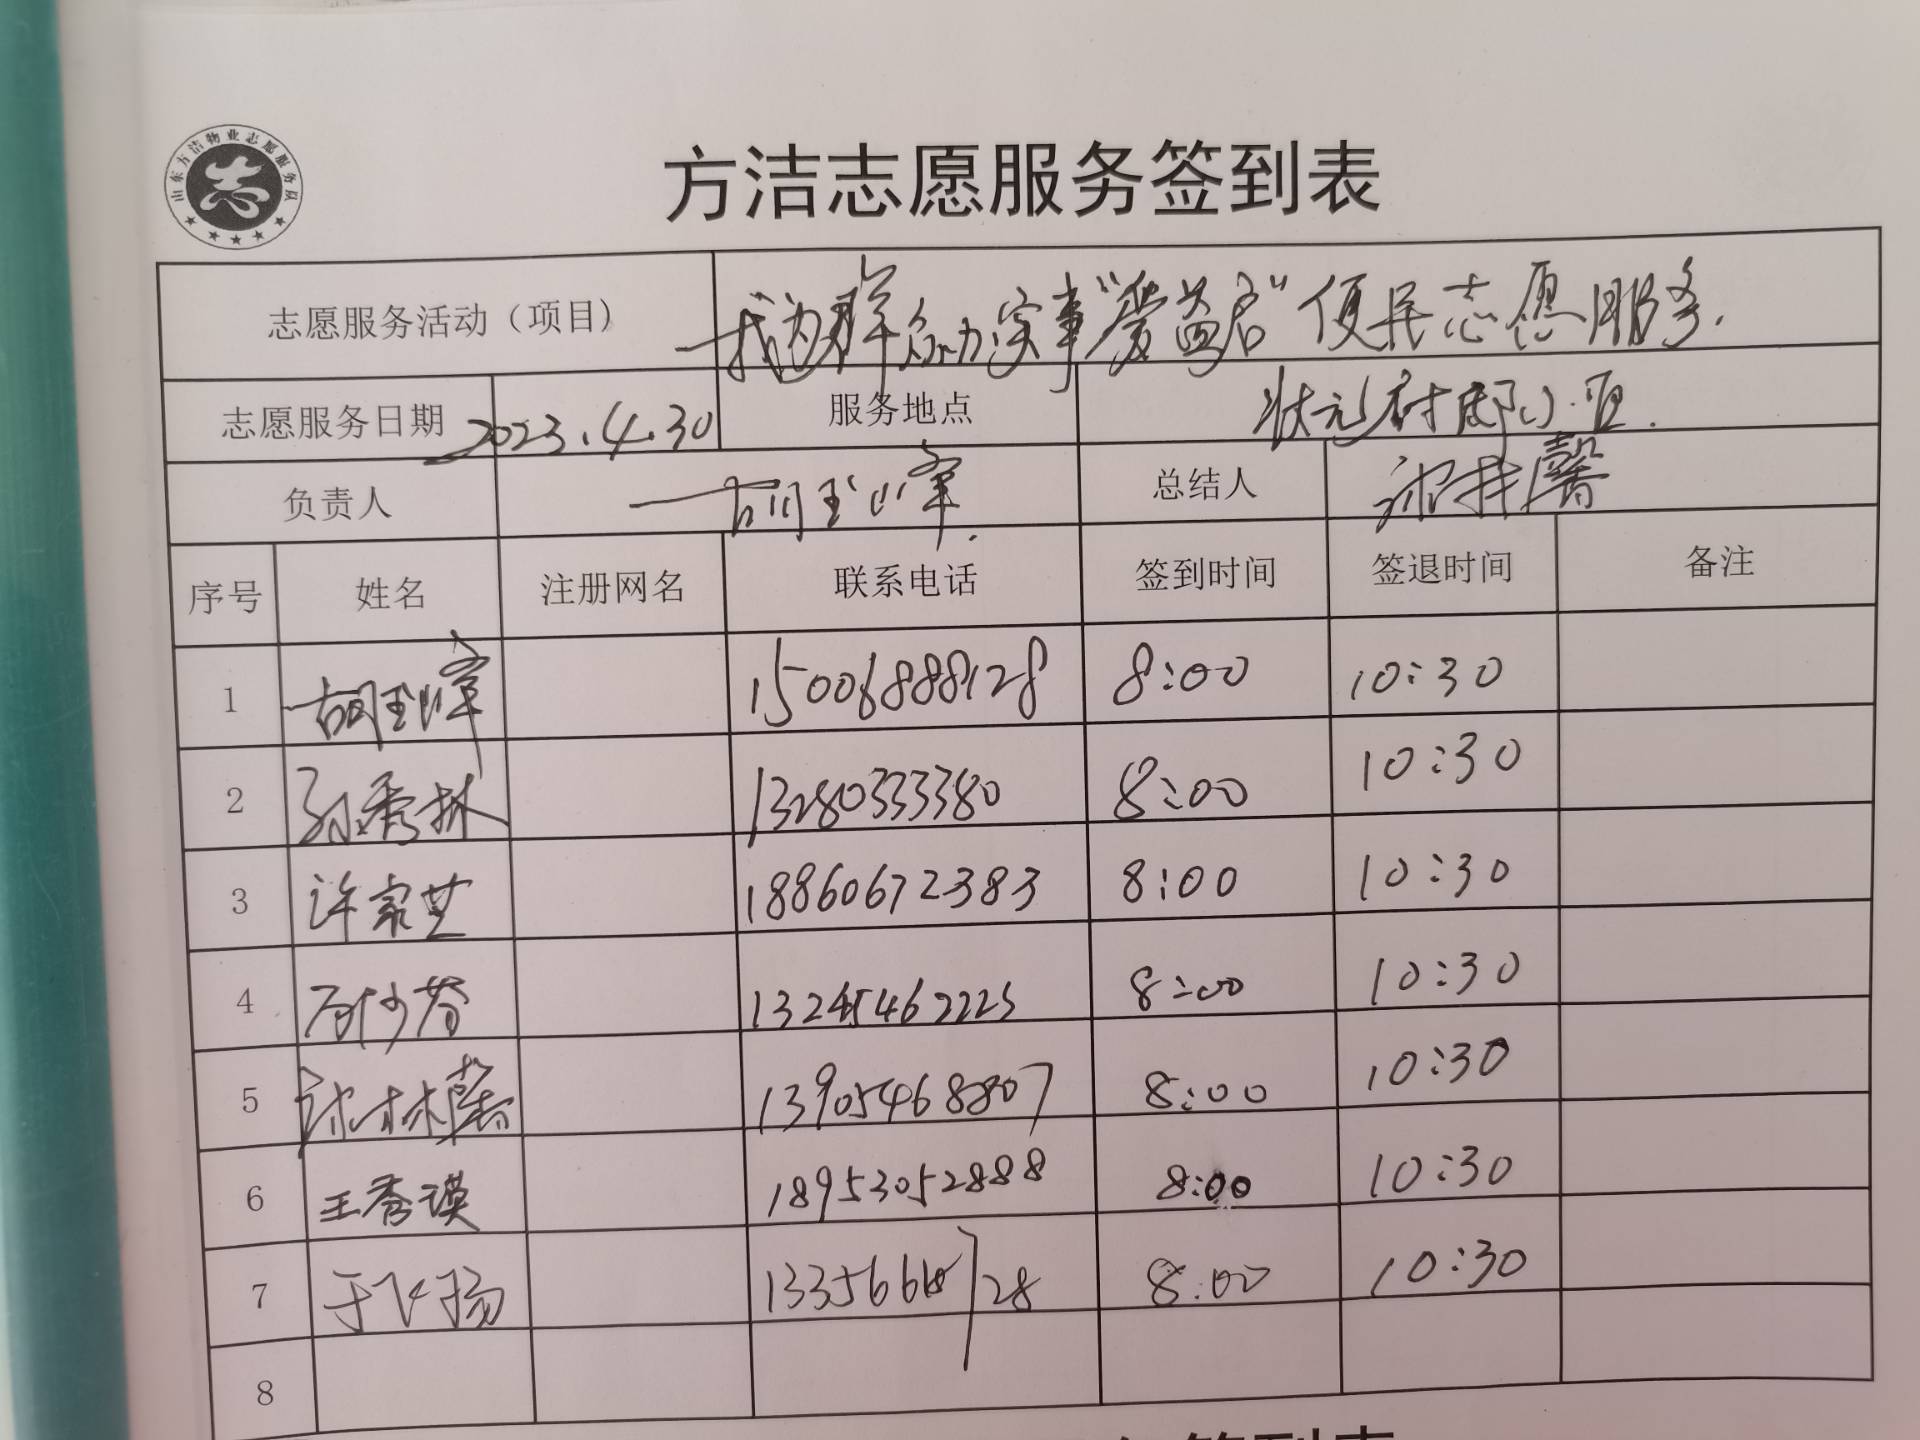 山东方洁物业志愿服务队
志
方洁志愿服务签到表
志愿服务活动（项目） 我为群众办实事"爱益居"便民志愿服务.
志愿服务日期 2023.4.30 服务地点 状元村邸小区.
负责人 胡玉军. 总结人
序号 姓名 注册网名 联系电话 签到时间 签退时间 备注
1 15006888128 8:00 10:30
2 孙秀林 13280333380 8:00 10:30
3 许家芝 18860672383 8:00 10:30
4 8:00 10:30
5 13905468807 8:00 10:30
6 王秀瑛 18953052888 8:00 10:30
7 于飞扬 8:00 10:30
8
签到表